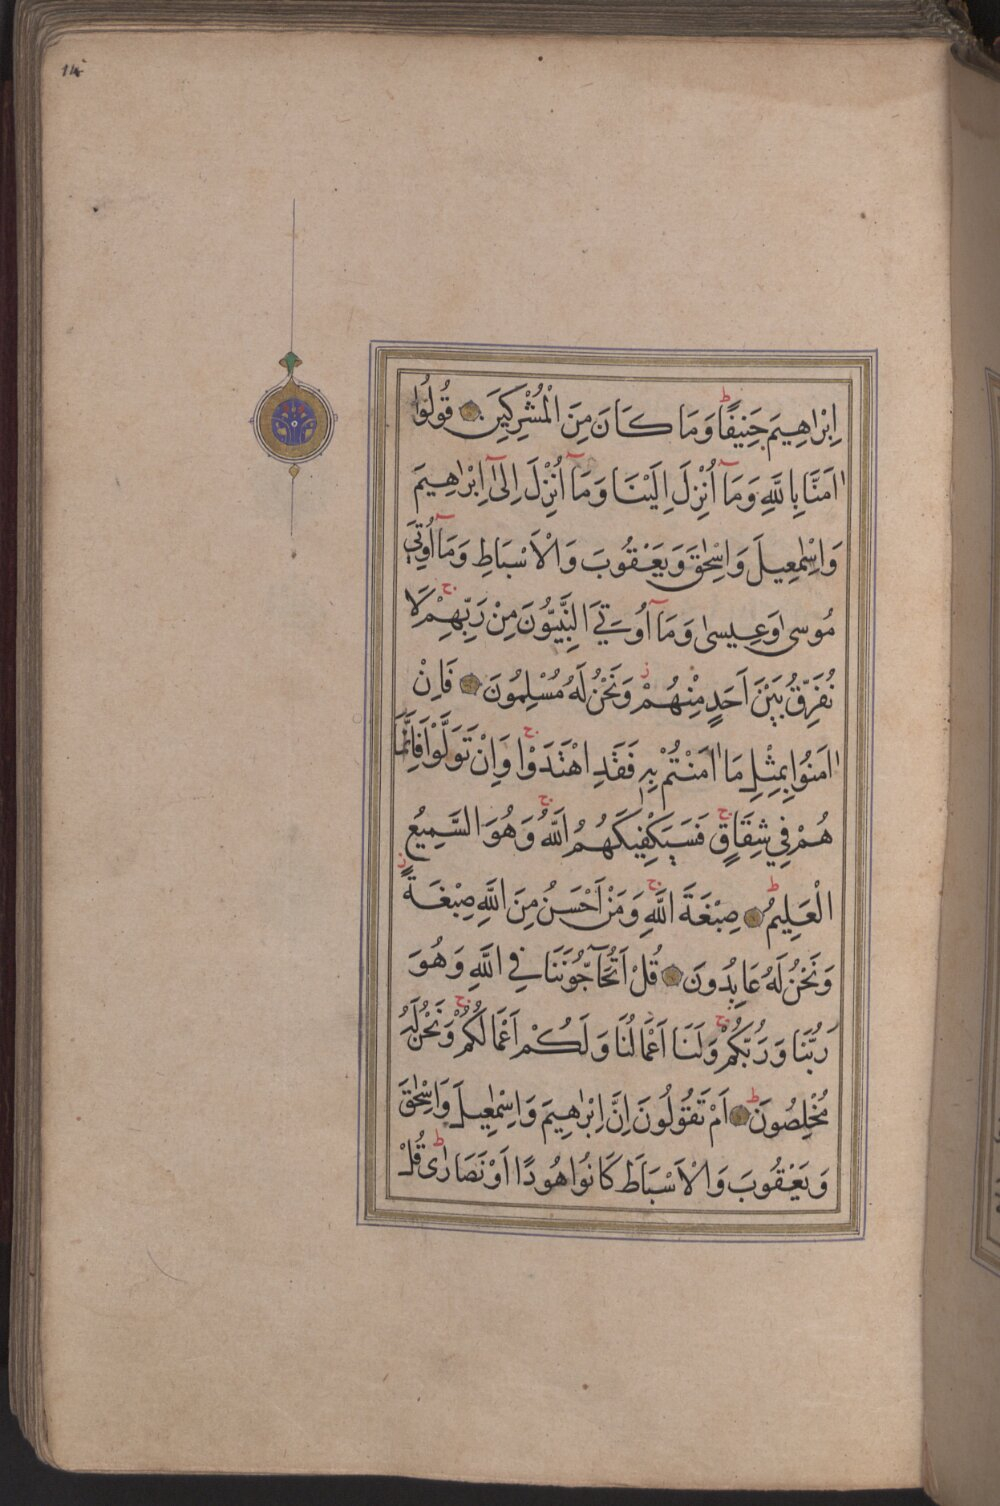 14
اِبْرٰاهِيمَ حَنِيفًاۜ وَمَا كَانَ مِنَ الْمُشْرِكِينَ قُولُوا
اٰمَنَّا بِاللّٰهِ وَمَآ اُنْزِلَ اِلَيْنَا وَمَآ اُنْزِلَ اِلٰٓى اِبْرٰهِيمَ
وَاِسْمٰعِيلَ وَاِسْحٰقَ وَيَعْقُوبَ وَالْاَسْبَاطِ وَمَآ اُوتِيَ
مُوسىٰ وَعِيسىٰ وَمَآ اُوتِيَ النَّبِيُّونَ مِنْ رَبِّهِمْ ج لَا
نُفَرِّقُ بَيْنَ اَحَدٍ مِنْهُمْ ز وَنَحْنُ لَهُ مُسْلِمُونَ فَاِنْ
اٰمَنُوا بِمِثْلِ مَا اٰمَنْتُمْ بِهٖ فَقَدِ اهْتَدَوْا ج وَاِنْ تَوَلَّوْا فَاِنَّمَا
هُمْ فِي شِقَاقٍ ج فَسَيَكْفِيكَهُمُ اللّٰهُ ج وَهُوَ السَّمِيعُ
الْعَلِيمُ ط صِبْغَةَ اللّٰهِ ج وَمَنْ اَحْسَنُ مِنَ اللّٰهِ صِبْغَةً ز
وَنَحْنُ لَهُ عَابِدُونَ قُلْ اَتُحَآجُّونَنَا فِي اللّٰهِ وَهُوَ
رَبُّنَا وَرَبُّكُمْ ج وَلَنَا اَعْمَالُنَا وَلَكُمْ اَعْمَالُكُمْ ج وَنَحْنُ لَهُ
مُخْلِصُونَ ط اَمْ تَقُولُونَ اِنَّ اِبْرٰهِيمَ وَاِسْمٰعِيلَ وَاِسْحٰقَ
وَيَعْقُوبَ وَالْاَسْبَاطَ كَانُوا هُودًا اَوْ نَصَارٰى ط قُلْ